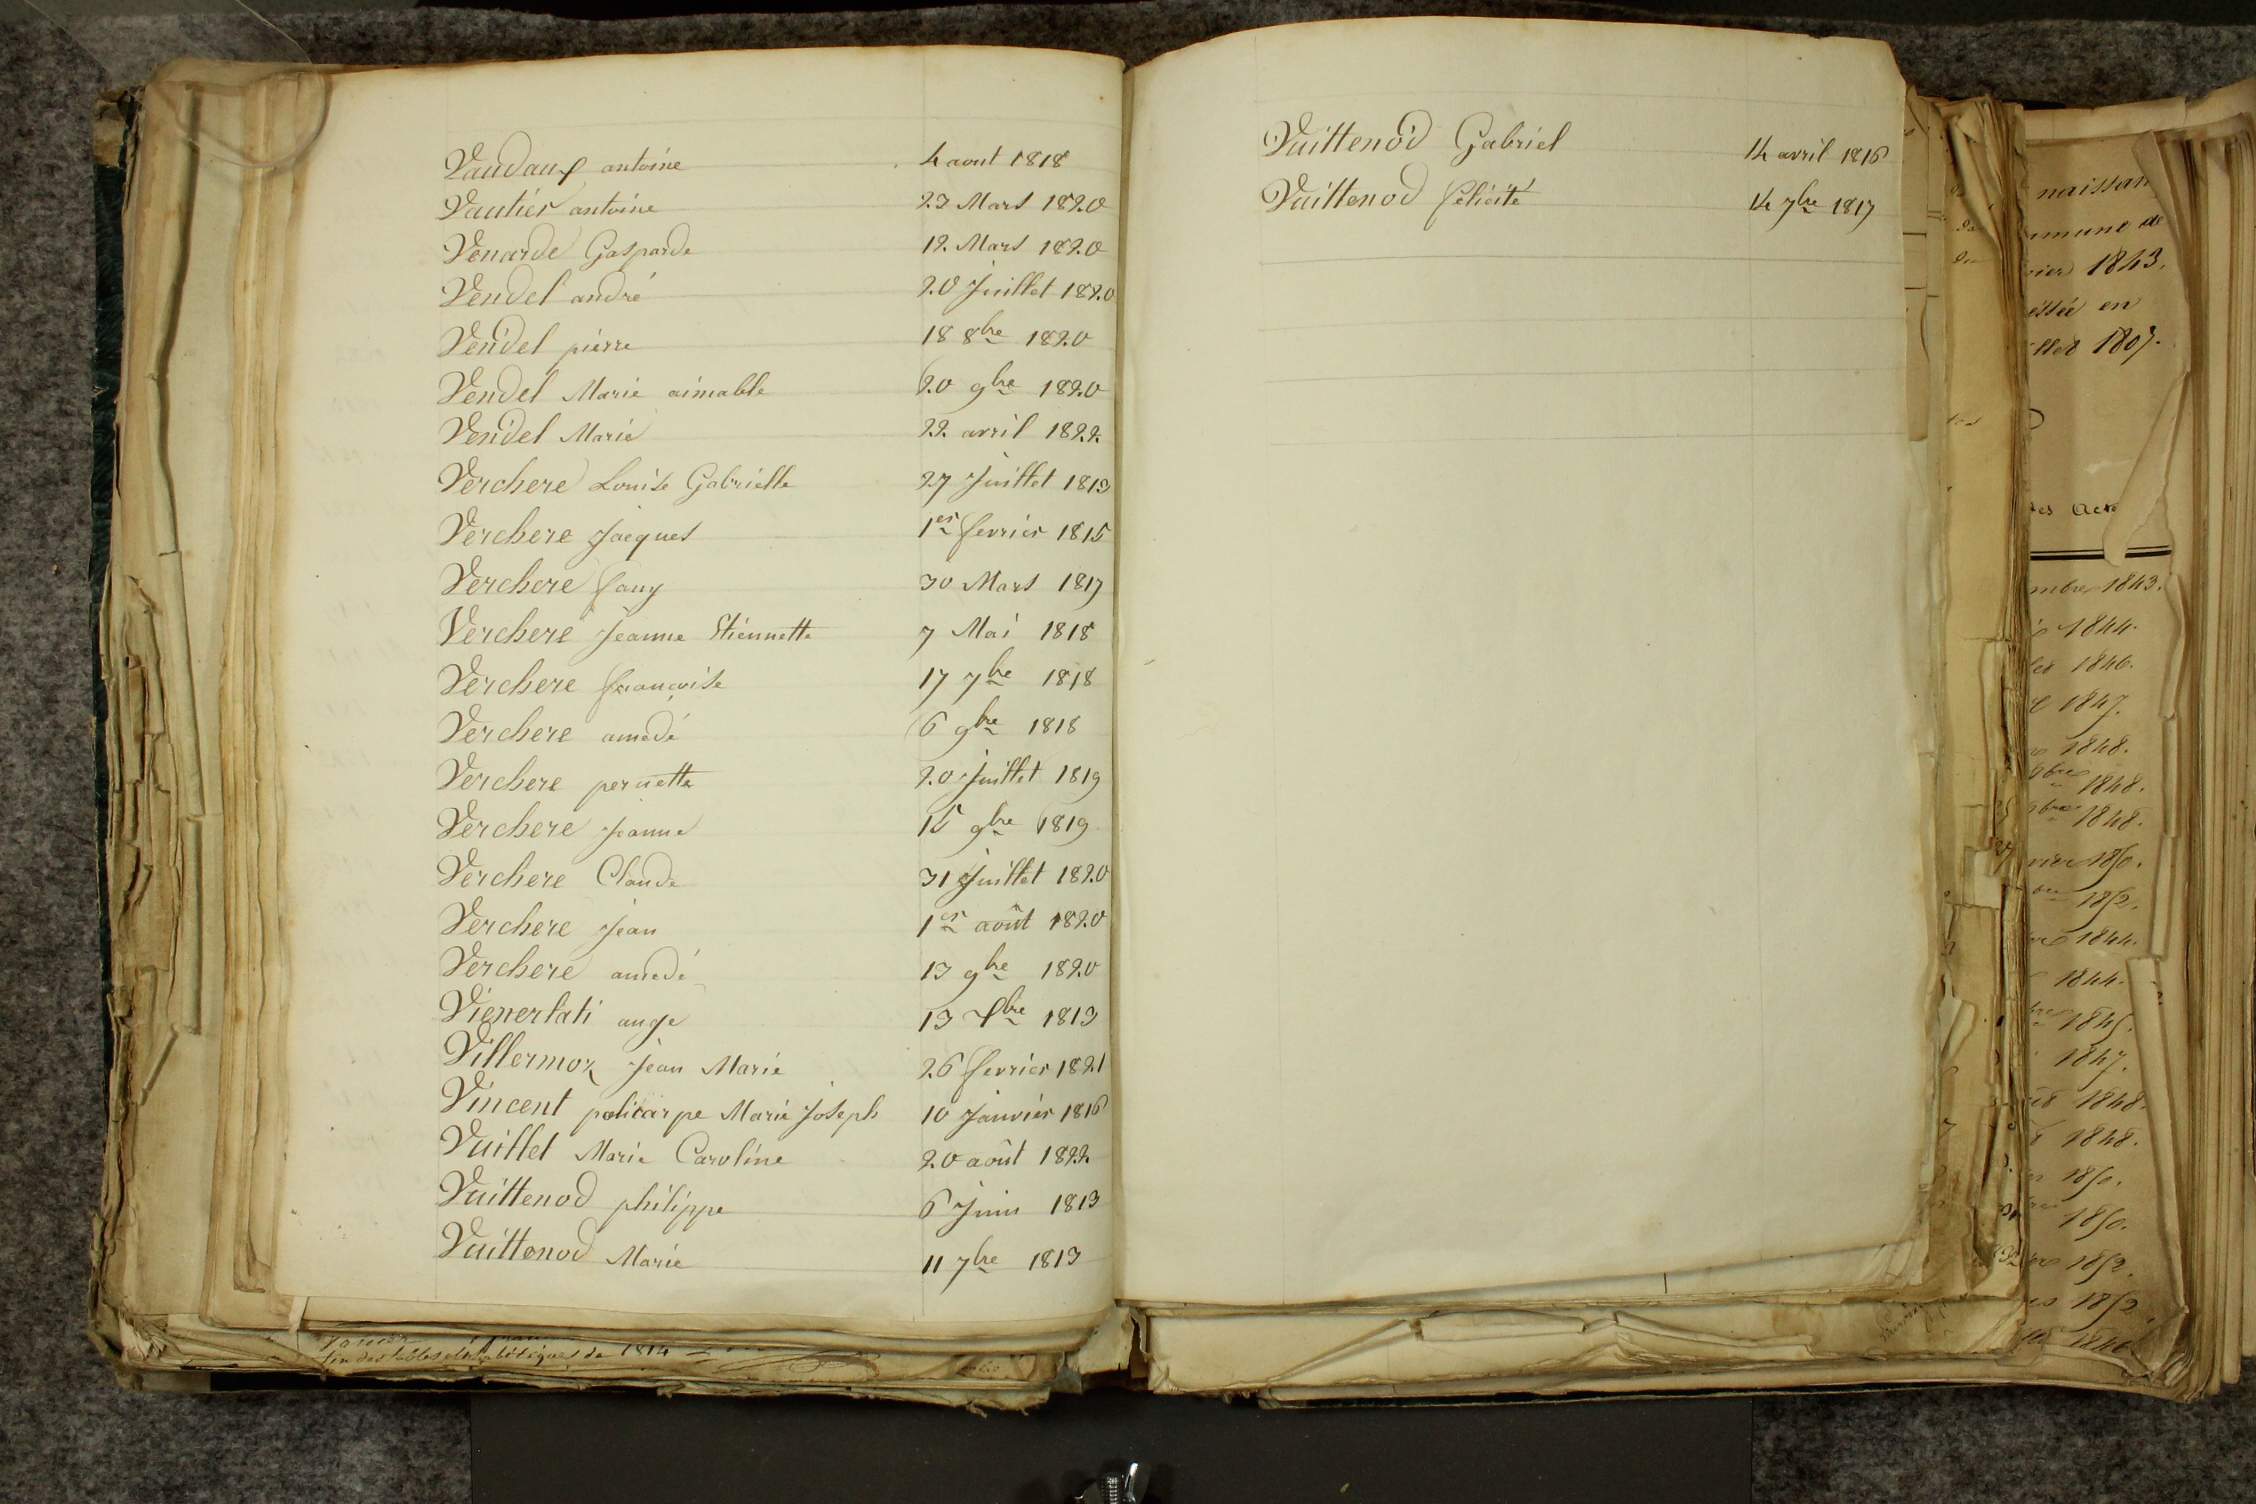 Vaudaux antoine 4 aout 1818
Vautier antoine 23 Mars 1820
Venarde Gasparde 12 Mars 1820
Vendel andré 20 Juillet 1820
Vendel pierre 18 8bre 1820
Vendel Marie aimable 20 9bre 1820
Vendel Marie 22 avril 1822
Verchere Louise Gabrielle 27 Juillet 1813
Verchere Jacques 1er fevrier 1815
Verchere fany 30 Mars 1817
Verchere Jeanne Etiennette 7 Mai 1818
Verchere francoise 17 7bre 1818
Verchere amedé 6 9bre 1818
Verchere pernette 20 Juillet 1819
Verchere Jeanne 15 9bre 1819
Verchere Claude 31 Juillet 1820
Verchere Jean 1er août 1820
Verchere amedé 13 9bre 1820
ange 13 1813
Villermoz Jean Marie 26 fevrier 1821
Vincent policarpe Marie Joseph 10 Janvier 1816
Vuillet Marie Caroline 20 août 1822
Vuittenod philippe 6 Juin 1813
Vuittenod Marie 11 7bre 1813
fin des tables alphabétiques de 1814
Vuittenod Gabriel 14 avril 1816
Vuittenod felicité 14 7bre 1817
naissan
mmune de
vier 1843.
en
1807.
des Acte
mbre 1843.
1844.
1846.
1847.
1848.
9bre 1848.
9bre 1848.
vier 1850.
1852.
1844.
1844.
1845.
1847.
1848.
1848.
1850.
1850.
1852.
1852
1846